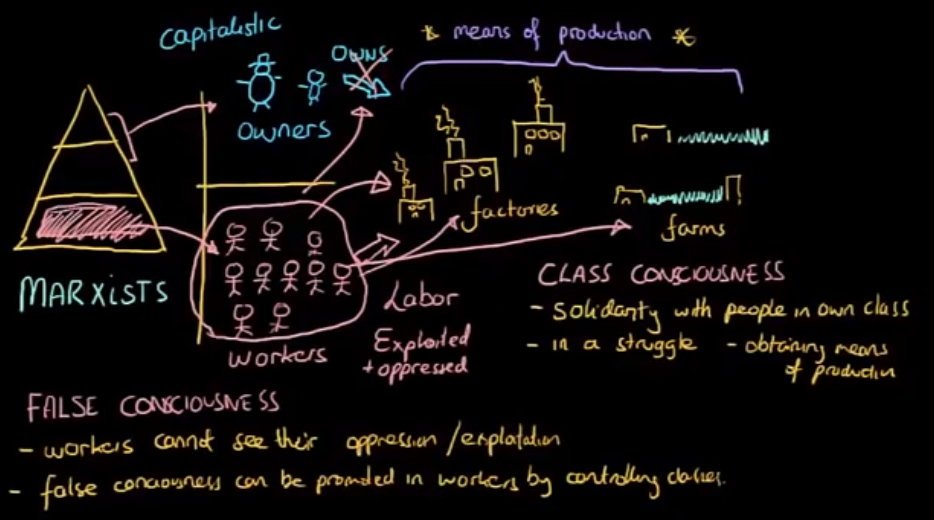 capitalistic
* means of production *
OWNS
Owners
factories
farms
MARXISTS
Labor
CLASS CONSCIOUSNESS
- Solidarity with people in own class
Exploited
+ oppressed
- in a struggle - obtaining means
of production
workers
FALSE CONSCIOUSNESS
- workers cannot see their oppression/exploitation
- false conciousness can be promoted in workers by controlling classes.